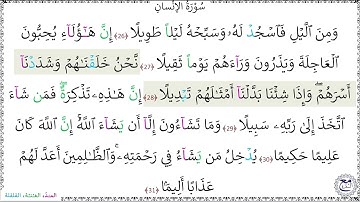 سُورَةُ الإِنسَانِ
وَمِنَ ٱلَّيْلِ فَٱسْجُدْ لَهُۥ وَسَبِّحْهُ لَيْلًا طَوِيلًا ﴿٢٦﴾ إِنَّ هَٰٓؤُلَآءِ يُحِبُّونَ
ٱلْعَاجِلَةَ وَيَذَرُونَ وَرَآءَهُمْ يَوْمًا ثَقِيلًا ﴿٢٧﴾ نَّحْنُ خَلَقْنَٰهُمْ وَشَدَدْنَآ
أَسْرَهُمْ ۖ وَإِذَا شِئْنَا بَدَّلْنَآ أَمْثَٰلَهُمْ تَبْدِيلًا ﴿٢٨﴾ إِنَّ هَٰذِهِۦ تَذْكِرَةٌ ۖ فَمَن شَآءَ
ٱتَّخَذَ إِلَىٰ رَبِّهِۦ سَبِيلًا ﴿٢٩﴾ وَمَا تَشَآءُونَ إِلَّآ أَن يَشَآءَ ٱللَّهُ ۚ إِنَّ ٱللَّهَ كَانَ
عَلِيمًا حَكِيمًا ﴿٣٠﴾ يُدْخِلُ مَن يَشَآءُ فِى رَحْمَتِهِۦ ۚ وَٱلظَّٰلِمِينَ أَعَدَّ لَهُمْ
عَذَابًا أَلِيمًۢا ﴿٣١﴾